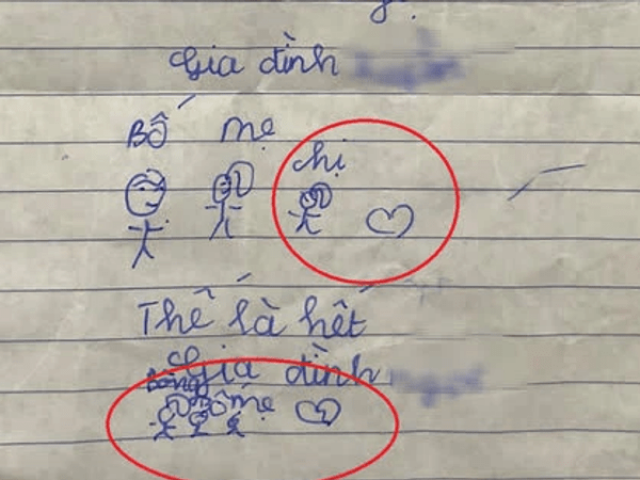 y.
Gia đình
Bố mẹ
chị
Thế là hết
Gia đình
Bông
Bố mẹ